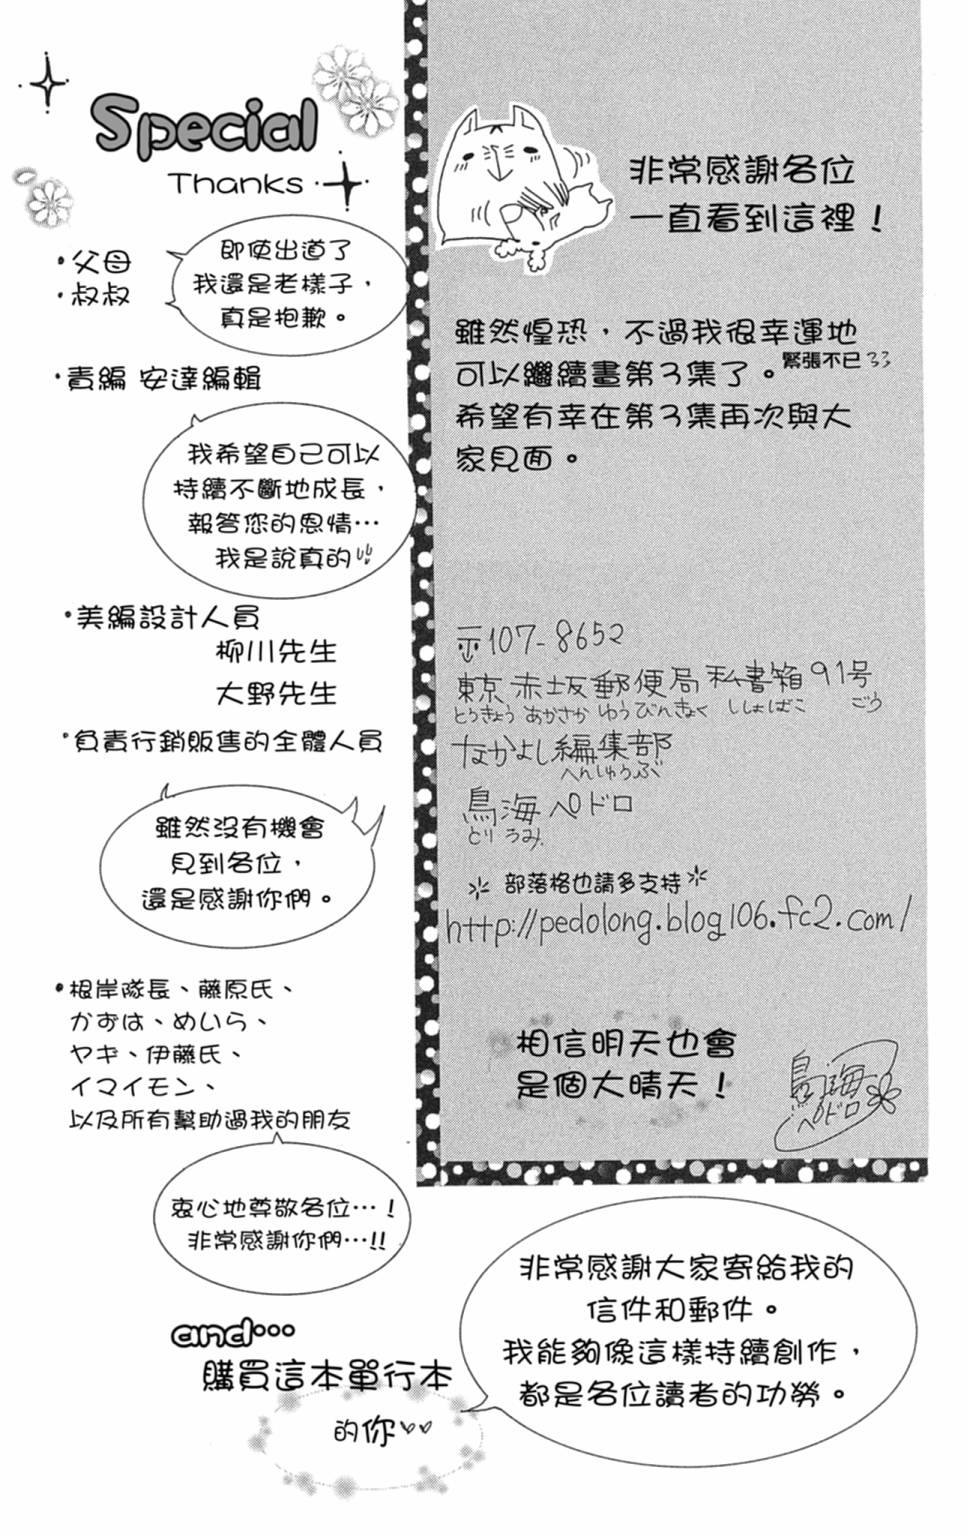 Special
Thanks
・父母
・叔叔
即使出道了
我還是老樣子，
真是抱歉。
・責編 安達編輯
我希望自己可以
持續不斷地成長，
報答您的恩情…
我是說真的!!
・美編設計人員
柳川先生
大野先生
・負責行銷販售的全體人員
雖然沒有機會
見到各位，
還是感謝你們。
・根岸隊長、藤原氏、
かずは、めいら、
ヤギ、伊藤氏、
イマイモン、
以及所有幫助過我的朋友
衷心地尊敬各位…！
非常感謝你們…!!
and…
購買這本單行本
的你
非常感謝大家寄給我的
信件和郵件。
我能夠像這樣持續創作，
都是各位讀者的功勞。
非常感謝各位
一直看到這裡！
雖然惶恐，不過我很幸運地
可以繼續畫第3集了。緊張不已
希望有幸在第3集再次與大
家見面。
〒107-8652
東京赤坂郵便局私書箱91号
とうきょう あかさか ゆうびんきょく ししょばこ ごう
なかよし編集部
へんしゅうぶ
鳥海ペドロ
とりうみ
部落格也請多支持
http://pedolong.blog106.fc2.com/
相信明天也會
是個大晴天！
鳥海
ペドロ